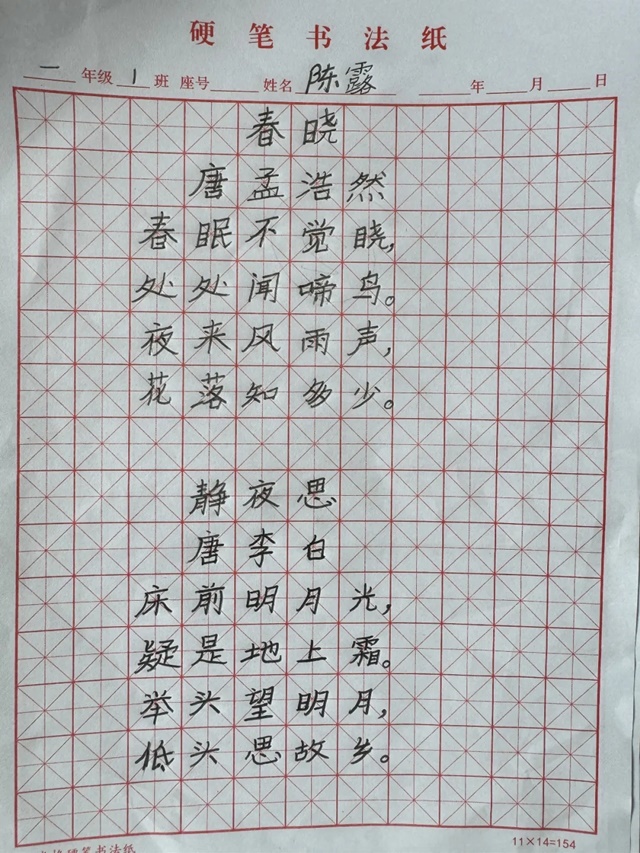 硬笔书法纸
一年级 1班 座号 姓名 陈露 年 月 日
春晓
唐孟浩然
春眠不觉晓,
处处闻啼鸟。
夜来风雨声,
花落知多少。
静夜思
唐李白
床前明月光,
疑是地上霜。
举头望明月,
低头思故乡。
硬笔书法纸 11×14=154